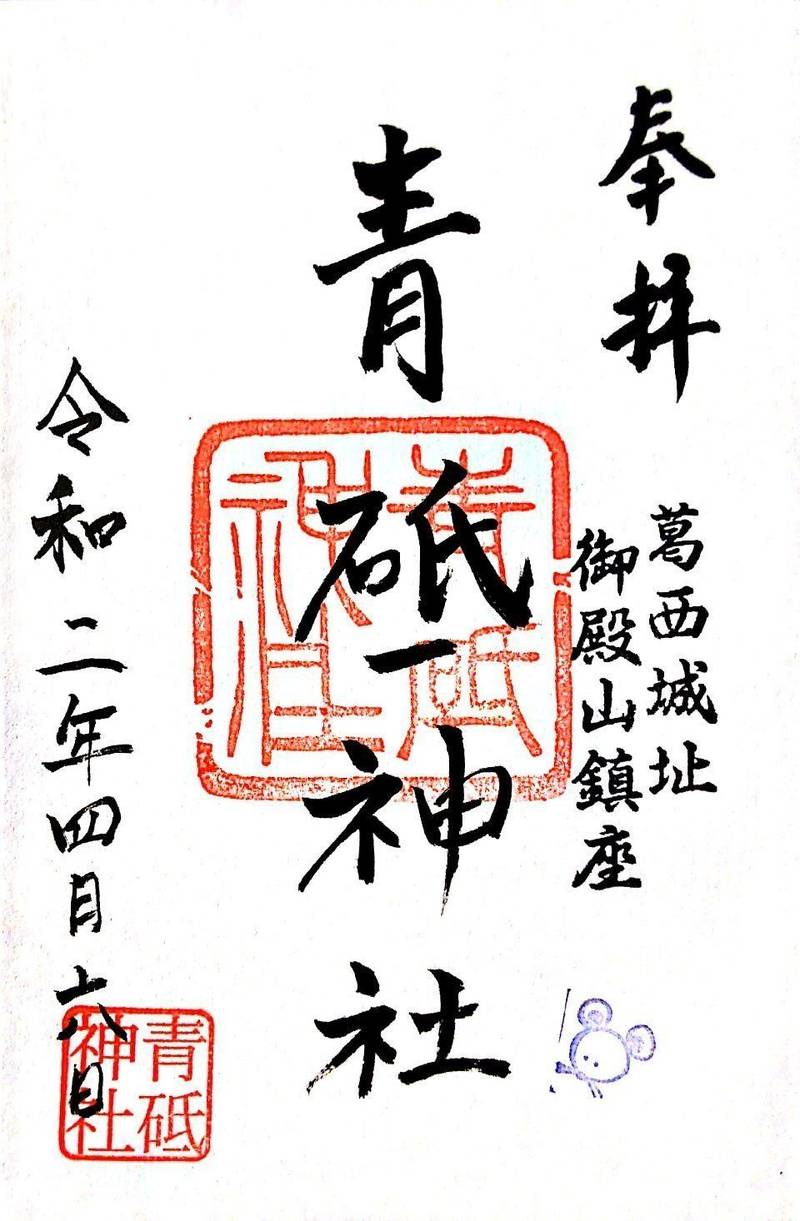 奉拝
葛西城址
御殿山鎮座
青砥神社
青砥神社
令和二年四月十八日
青砥神社